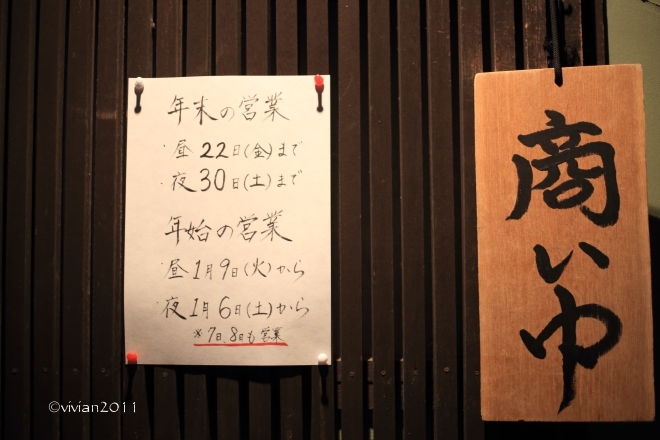 年末の営業
・昼 22日(金)まで
・夜 30日(土)まで
年始の営業
・昼 1月9日(火)から
・夜 1月6日(土)から
※7日、8日も営業
商い中
©vivian2011